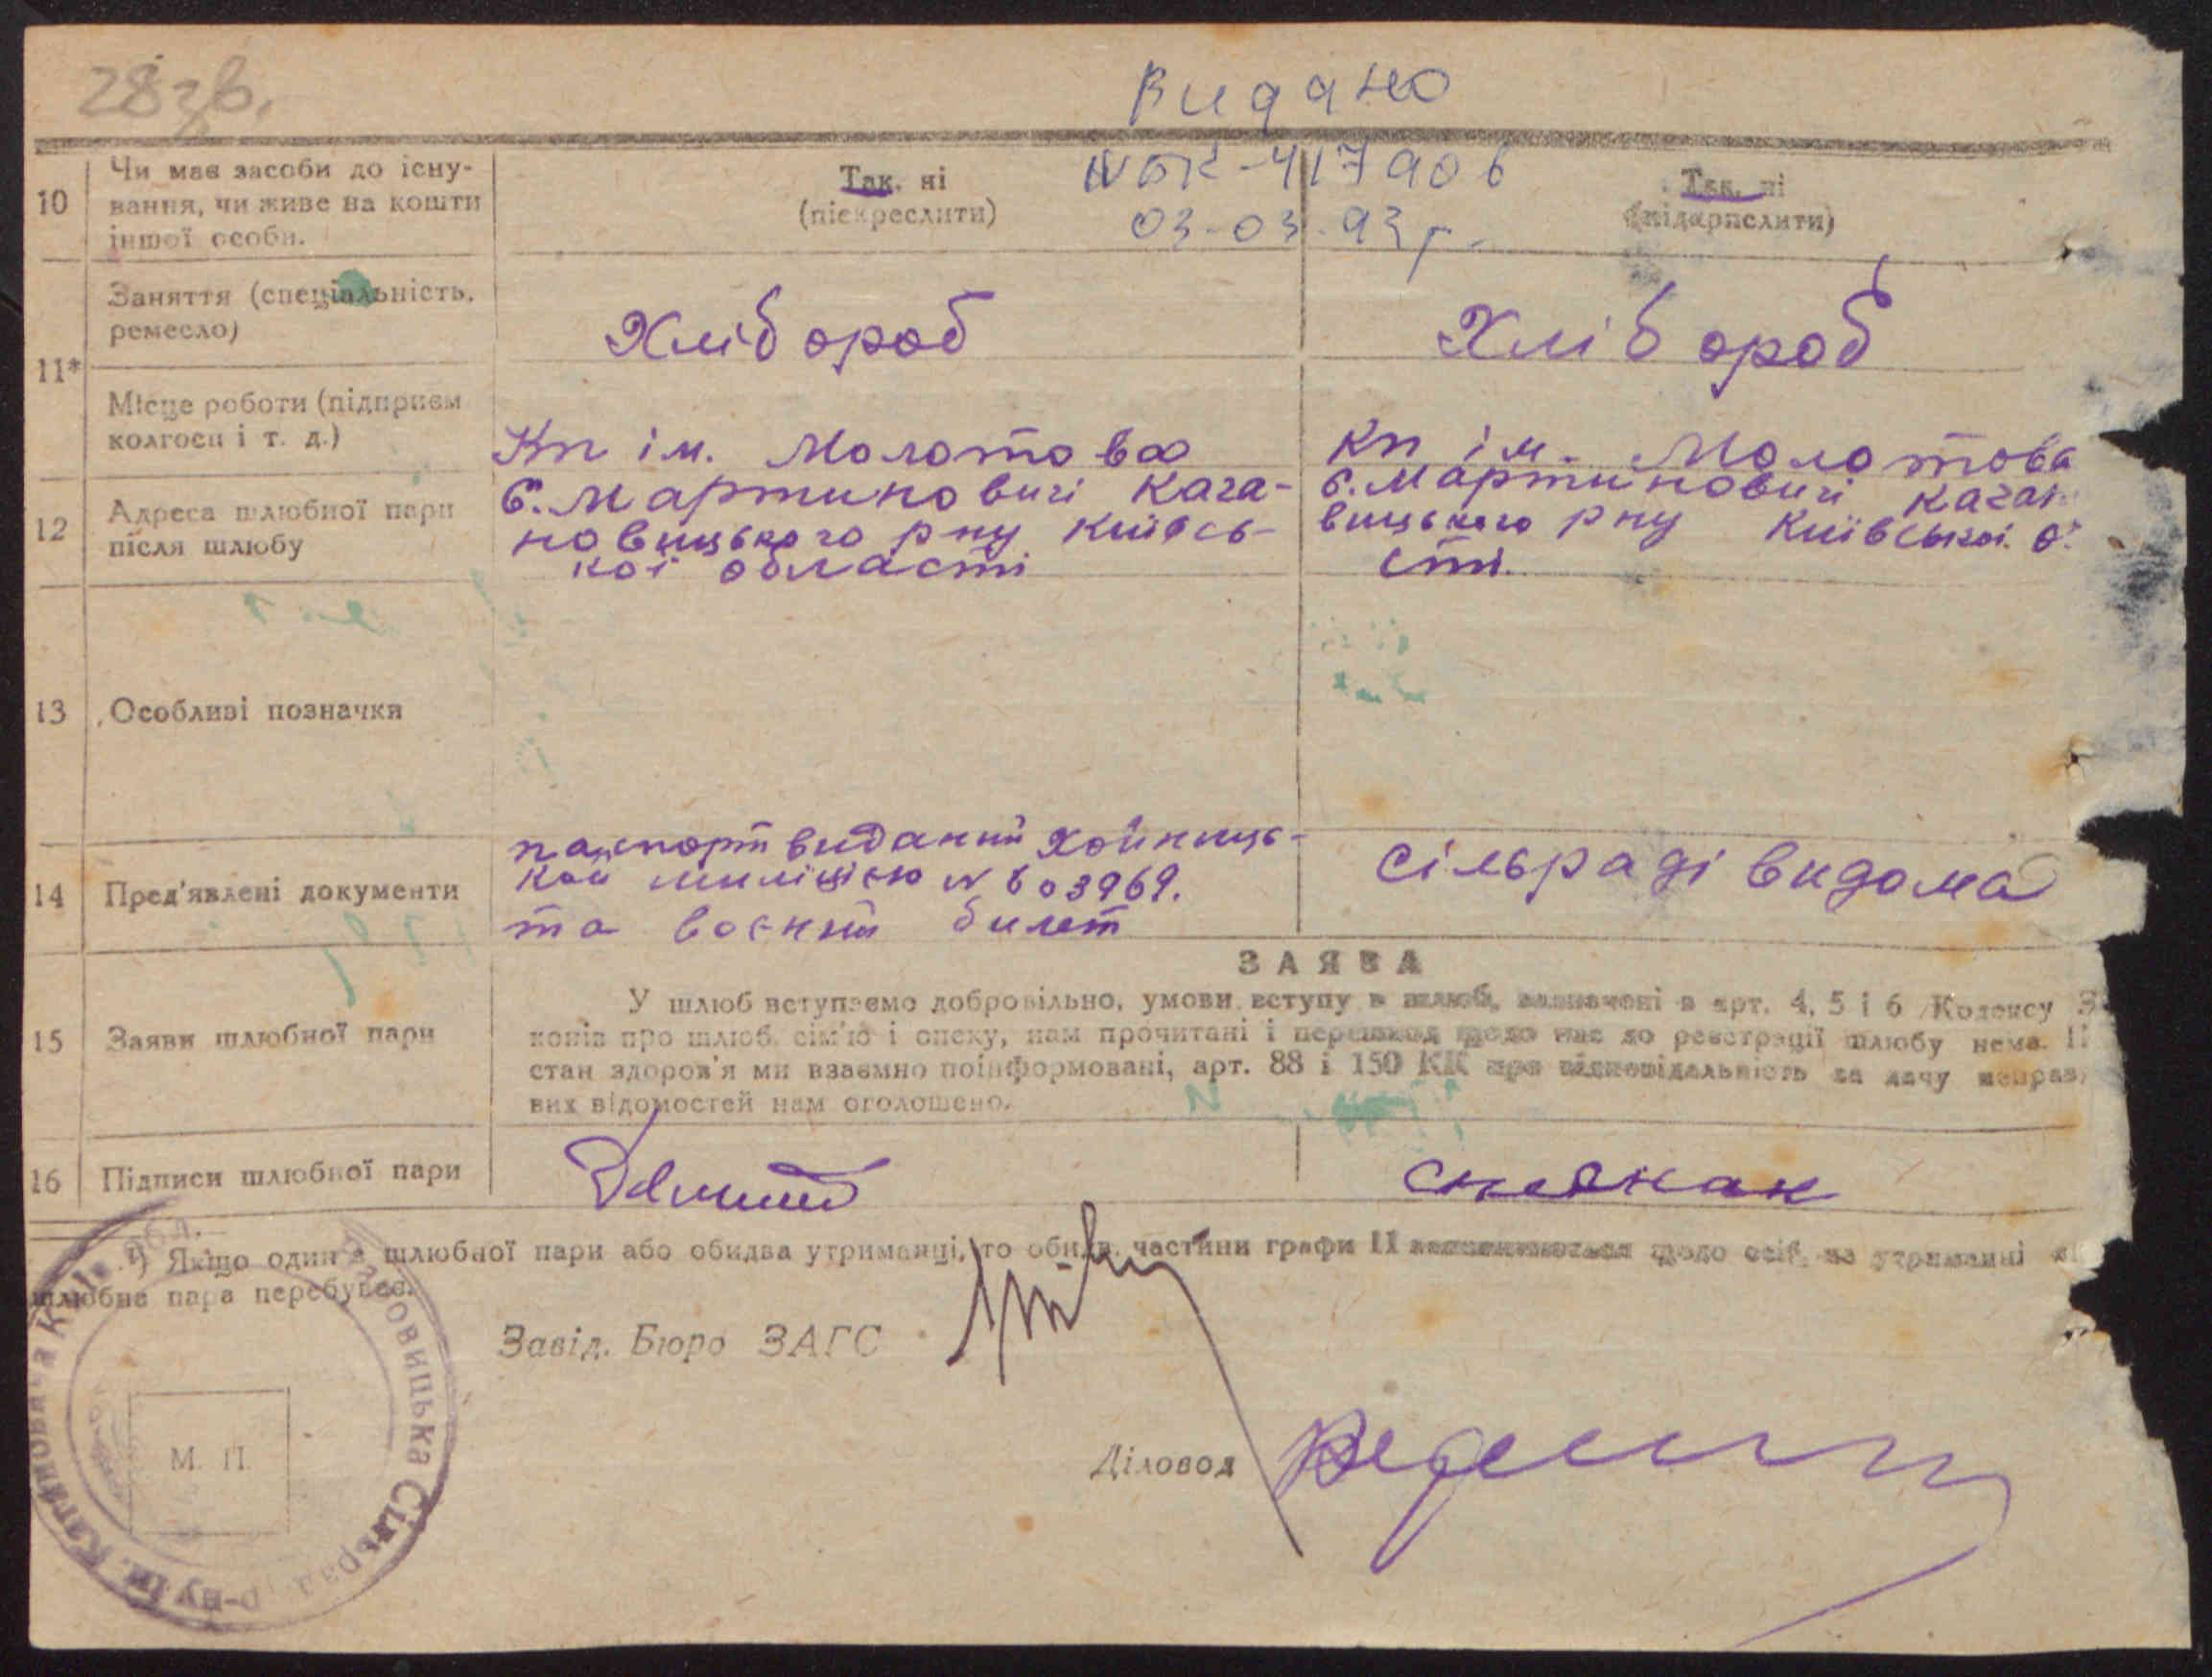 28зв.
Видано
№ БК-417906
03-03-93 г.
10
Чи має засоби до існу-
вання, чи живе на кошти
іншої особи.
Так, ні
(підкреслити)
Так, ні
(підкреслити)
11*
Заняття (спеціальність,
ремесло)
Хлібороб
Хлібороб
Місце роботи (підприєм
колгосп і т. д.)
Кп ім. Молотова
Кп ім. Молотова
12
Адреса шлюбної пари
після шлюбу
с. Мартиновичі Кага-
новицького рну Київсь-
кої області
с. Мартиновичі Каган
вицького рну Київської о
сті.
13
Особливі позначки
14
Пред'явлені документи
паспорт виданий Хойниць-
кой міліцією № 603969.
та воєний билет
сільраді видома
15
Заяви шлюбної пари
ЗАЯВА
У шлюб вступаємо добровільно, умови вступу в шлюб, зазначені в арт. 4, 5 і 6 Кодексу З
конів про шлюб, сім'ю і опеку, нам прочитані і перешкод щодо нас до реєстрації шлюбу нема. П
стан здоров'я ми взаємно поінформовані, арт. 88 і 150 КК про відповідальність за дачу неправ
вих відомостей нам оголошено.
16
Підписи шлюбної пари
¹) Якщо один з шлюбної пари або обидва утриманці, то обидві частини графи 11 заповнюються щодо осіб, на утриманні
шлюбна пара перебуває.
Завід. Бюро ЗАГС
Діловод
М. П.
новицька Сільрада
р-ну ім. Кагановича
обл.